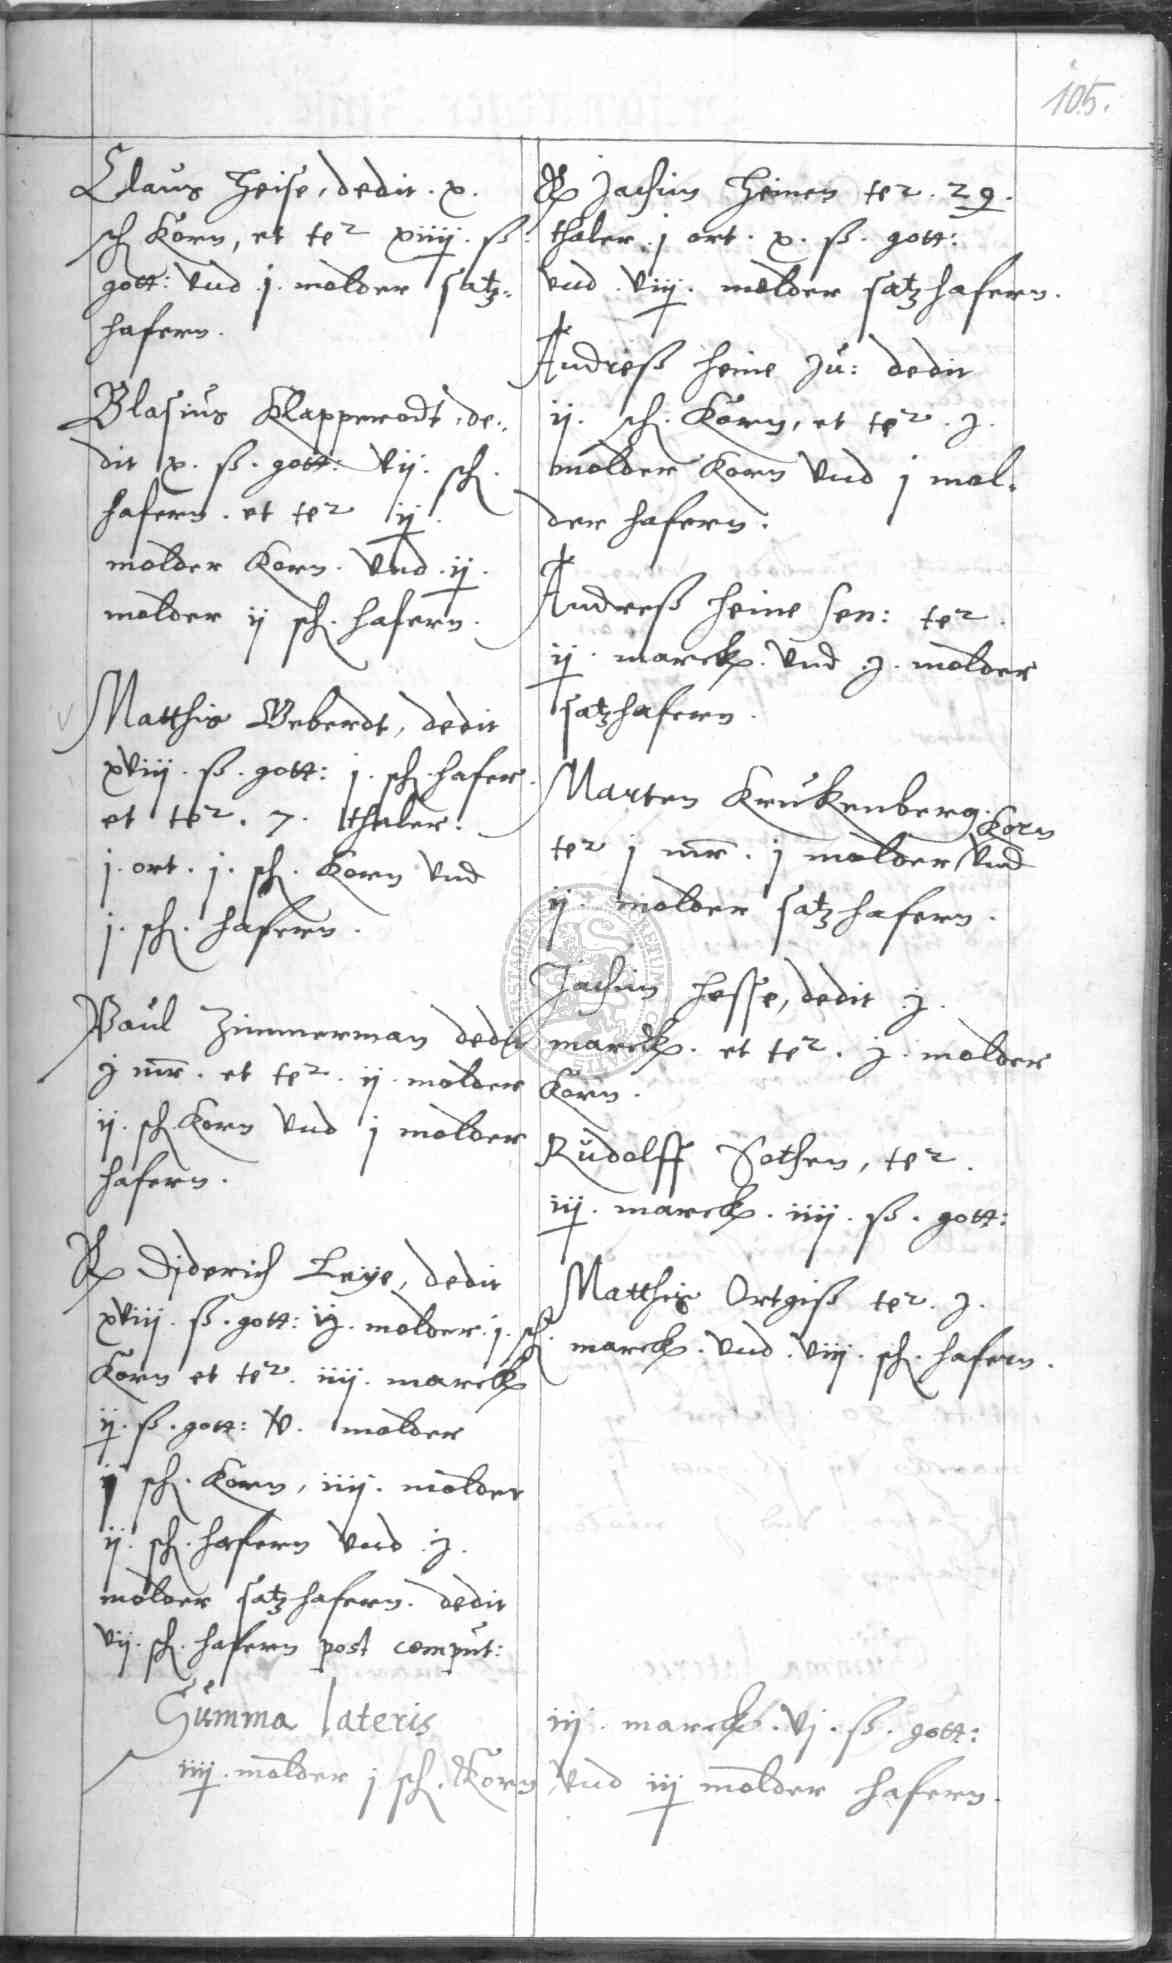 105.
Claus Heise, dedit. x.
sch Korn, et ter xiiij. ß
gott: vnd .j. molder satz-
hafern.
Blasius Klapperodt, de-
dit x. ß. gott: vij. sch.
hafern. et ter ij.
molder Korn. vnd .ij.
molder ij sch. hafern.
Matthis Geberdt, dedit
xviij. ß. gott: j. sch. hafer.
et ter. 7. thaler.
j. ort. j. sch. Korn vnd
j. sch. hafern.
Paul Zimmerman dedit
j mr. et ter. ij. molder
ij. sch. Korn vnd j molder
hafern.
Diderich Leye, dedit
xviij. ß. gott: ij. molder. j. sch.
Korn et ter. iiij. marck
ij. ß. gott: v. molder
ij sch. Korn, iiij. molder
ij. sch. hafern vnd .j.
molder satzhafern. dedit
vij. sch. hafern post comput:
Jachim Heinen ter. 29.
thaler. j ort. x. ß. gott:
vnd .viij. molder satzhafern.
Andreß Heine Ju: dedit
ij. sch. Korn, et ter. j.
molder Korn vnd j mol-
der hafern.
Andreß Heine Sen: ter.
ij. marck. vnd .j. molder
satzhafern.
Marten Krukenberg.
ter j mr. j molder Korn vnd
ij. molder satzhafern.
Jachim Hesse, dedit j.
marck. et ter. j. molder
Korn.
Rudolff Sothen, ter.
iij. marck. iiij. ß. gott:
Matthis Ortgiß ter. j.
marck. vnd .viij. sch. hafern.
Summa lateris iij. marck. vj. ß. gott:
iiij. molder j sch. Korn vnd iij molder hafern.